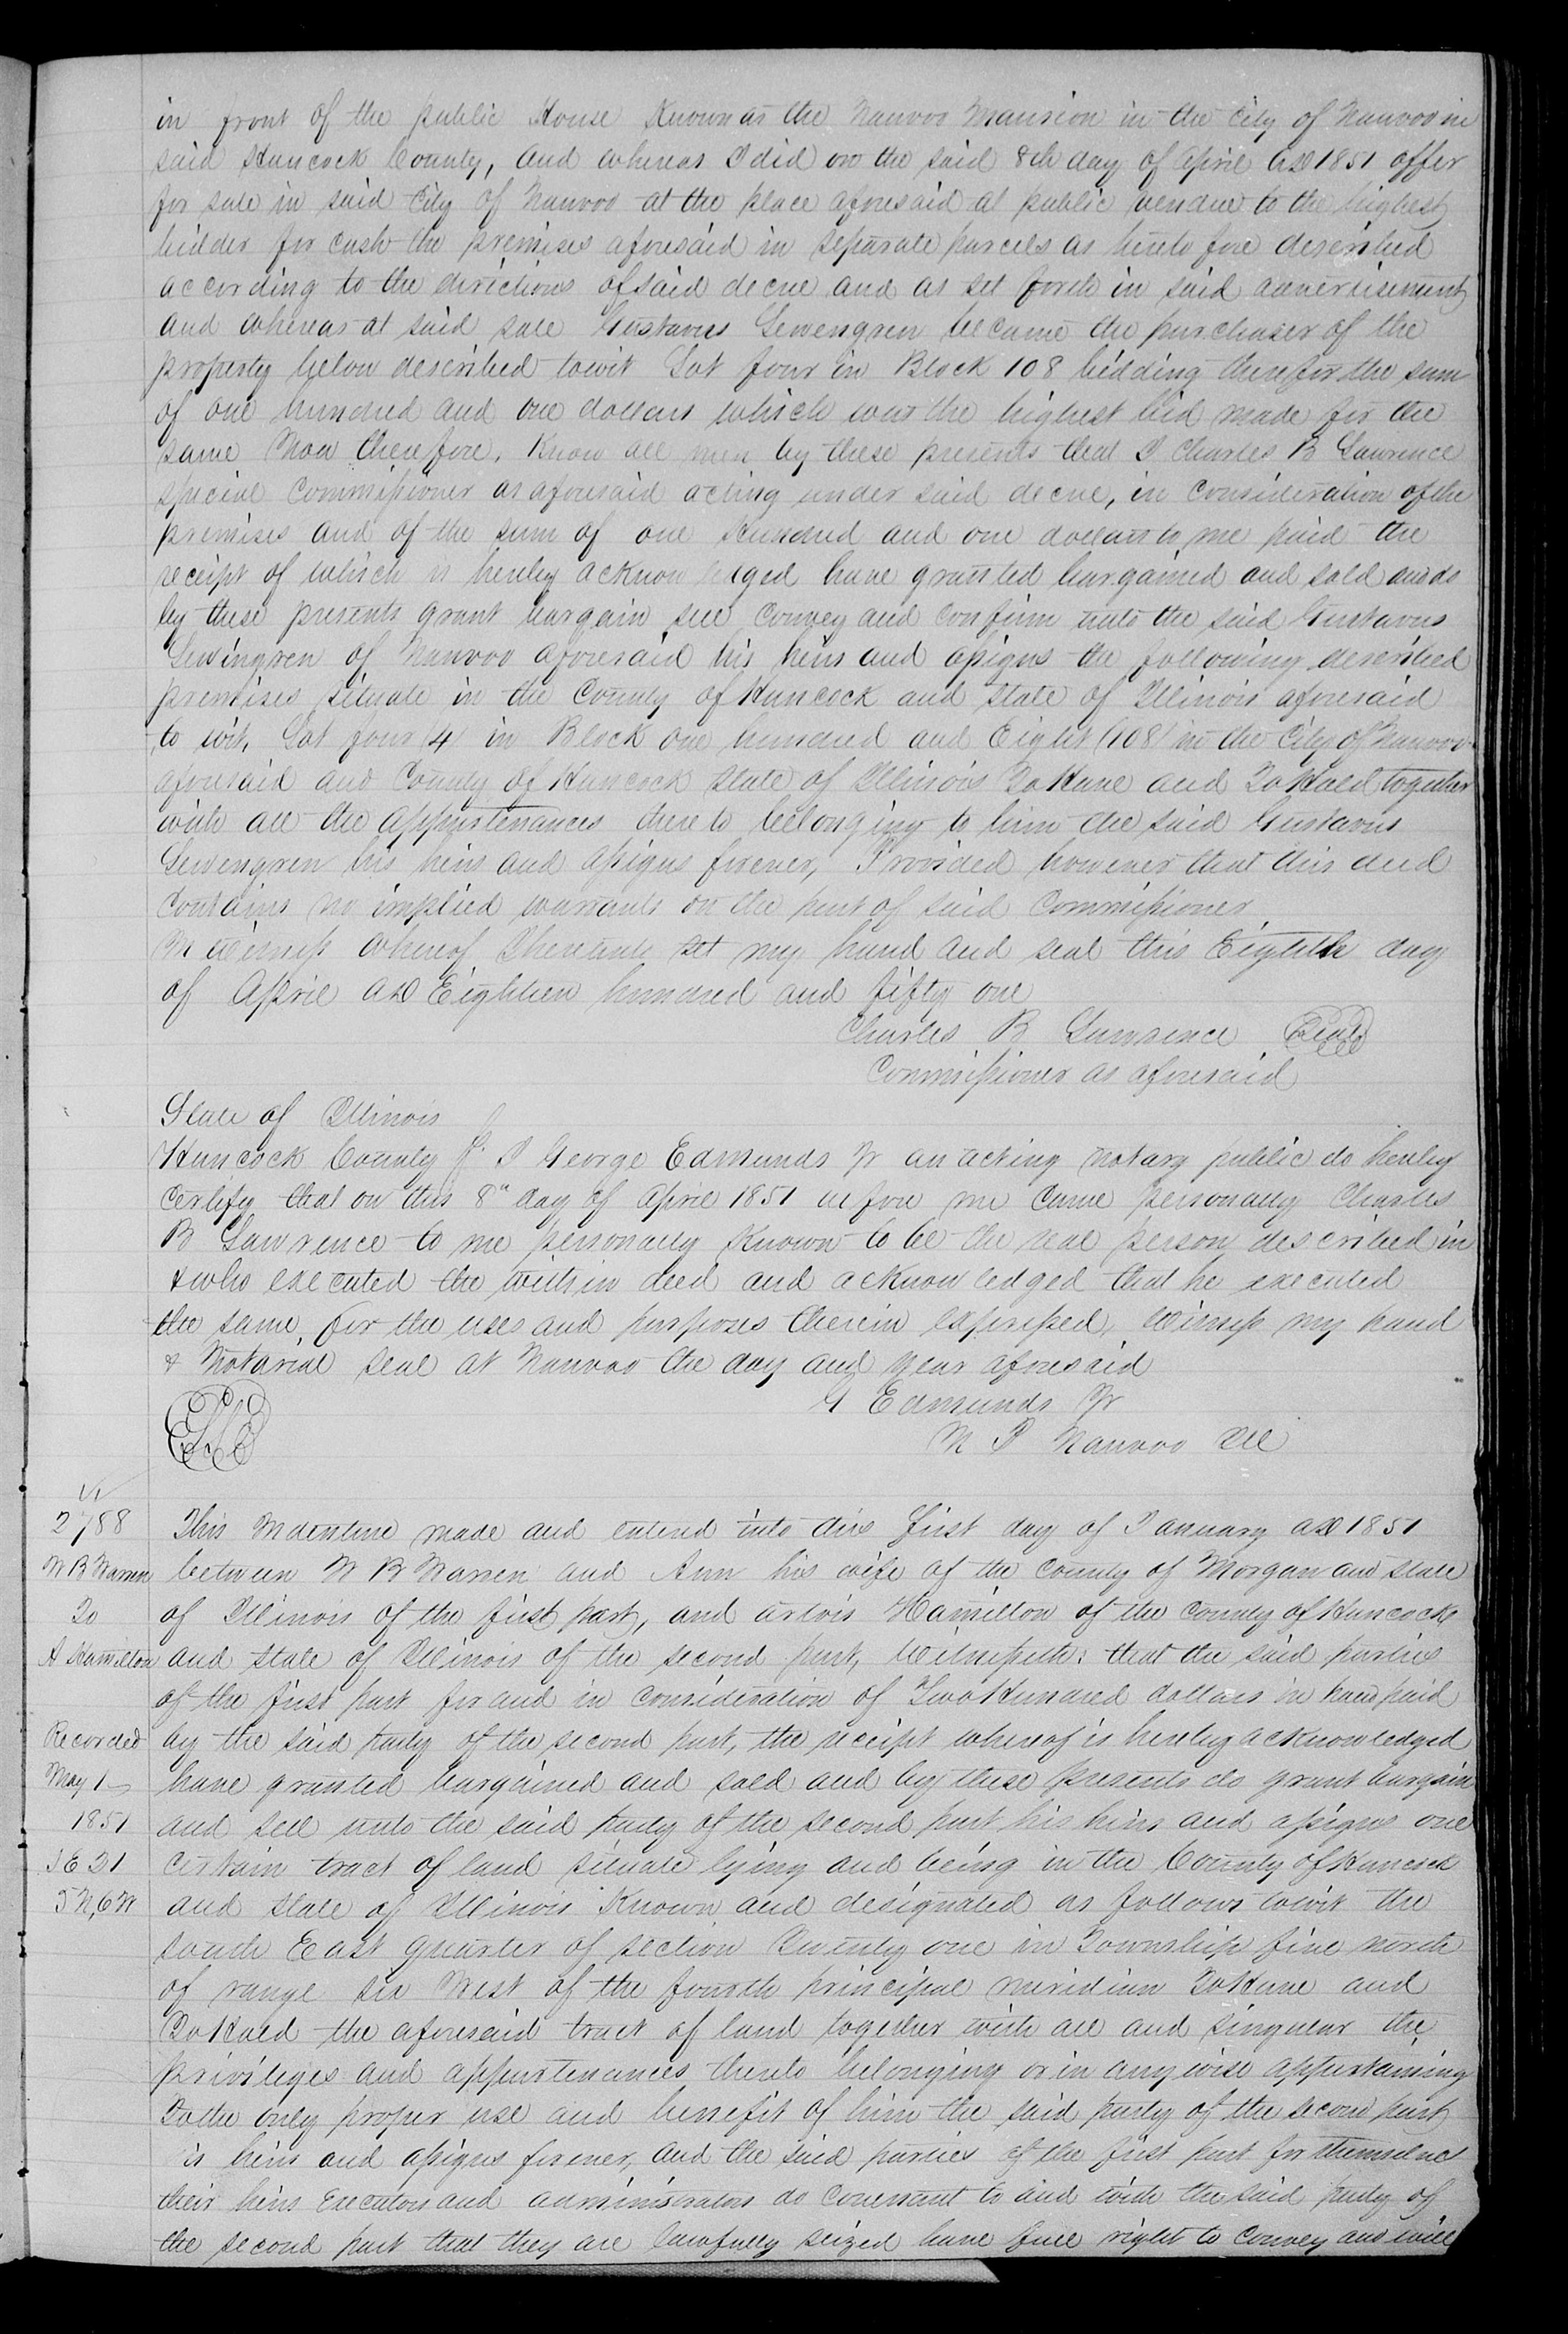 in front of the public House Known as the Nauvoo Mansion in the City of Nauvoo in
said Hancock County, and whereas I did on the said 8th day of April AD 1851 offer
for sale in said City of Nauvoo at the place aforesaid at public vendue to the highest
bidder for cash the premises aforesaid in separate parcels as hereto fore described
according to the directions of said decree and as set forth in said advertisement
and whereas at said sale Gustavus Lewengren became the purchaser of the
property below described towit Lot four in Block 108 bidding therefor the sum
of one hundred and one dollars which was the highest bid made for the
same Now therefore, Know all men by these presents that I Charles B Lawrence
special Commissioner as aforesaid acting under said decree, in Consideration of the
premises and of the sum of one Hundred and one dollars to me paid the
receipt of which is hereby acknowledged have granted bargained and sold and do
by these presents grant bargain sell Convey and Confirm unto the said Gustavus
Lewingren of Nauvoo aforesaid his heirs and assigns the following described
premises situate in the County of Hancock and State of Illinois aforesaid
to wit, Lot four (4) in Block one hundred and Eight (108) in the City of Nauvoo
aforesaid and County of Hancock State of Illinois To Have and To Hold together
with all the appurtenances thereto belonging to him the said Gustavus
Lewengren his heirs and assigns forever, Provided however that this deed
Contains no implied warrants on the part of said Commissioner
In Witness whereof I hereunto set my hand and seal this Eighth day
of April AD Eighteen hundred and fifty one
Charles B Lawrence Seal
Commissioner as aforesaid
State of Illinois
Hancock County I George Edmunds Jr an acting notary public do hereby
Certify that on this 8" day of April 1851 before me Came personally Charles
B Lawrence to me personally Known to be the real person described in
& who executed the within deed and acknowledged that he executed
the same, for the uses and purposes therein expressed, Witness my hand
& Notarial seal at Nauvoo the day and year aforesaid
G Edmunds Jr
N P Nauvoo Ill
2788
W B Warren
To
A Hamilton
Recorded
May 1
1851
SE 21
5 N, 6 W
This Indenture made and entered into this first day of January AD 1851
between W B Warren and Ann his wife of the County of Morgan and State
of Illinois of the first part, and Artois Hamilton of the County of Hancock
and State of Illinois of the second part, Witnesseth, that the said parties
of the first part for and in Consideration of Two Hundred dollars in hand paid
by the said party of the second part, the receipt whereof is hereby acknowledged
have granted bargained and sold and by these presents do grant bargain
and sell unto the said party of the second part his heirs and assigns one
Certain tract of land situate lying and being in the County of Hancock
and State of Illinois Known and designated as follows towit the
South East quarter of section Twenty one in Township five north
of range six West of the fourth principal meridian To Have and
To Hold the aforesaid tract of land together with all and singular the
privileges and appurtenances thereto belonging or in any wise appertaining
To the only proper use and benefit of him the said party of the second part
is heirs and assigns forever, And the said parties of the first part for themselves
their heirs Executors and administrators do Covenant to and with the said party of
the second part that they are lawfully seized have full right to Convey and will